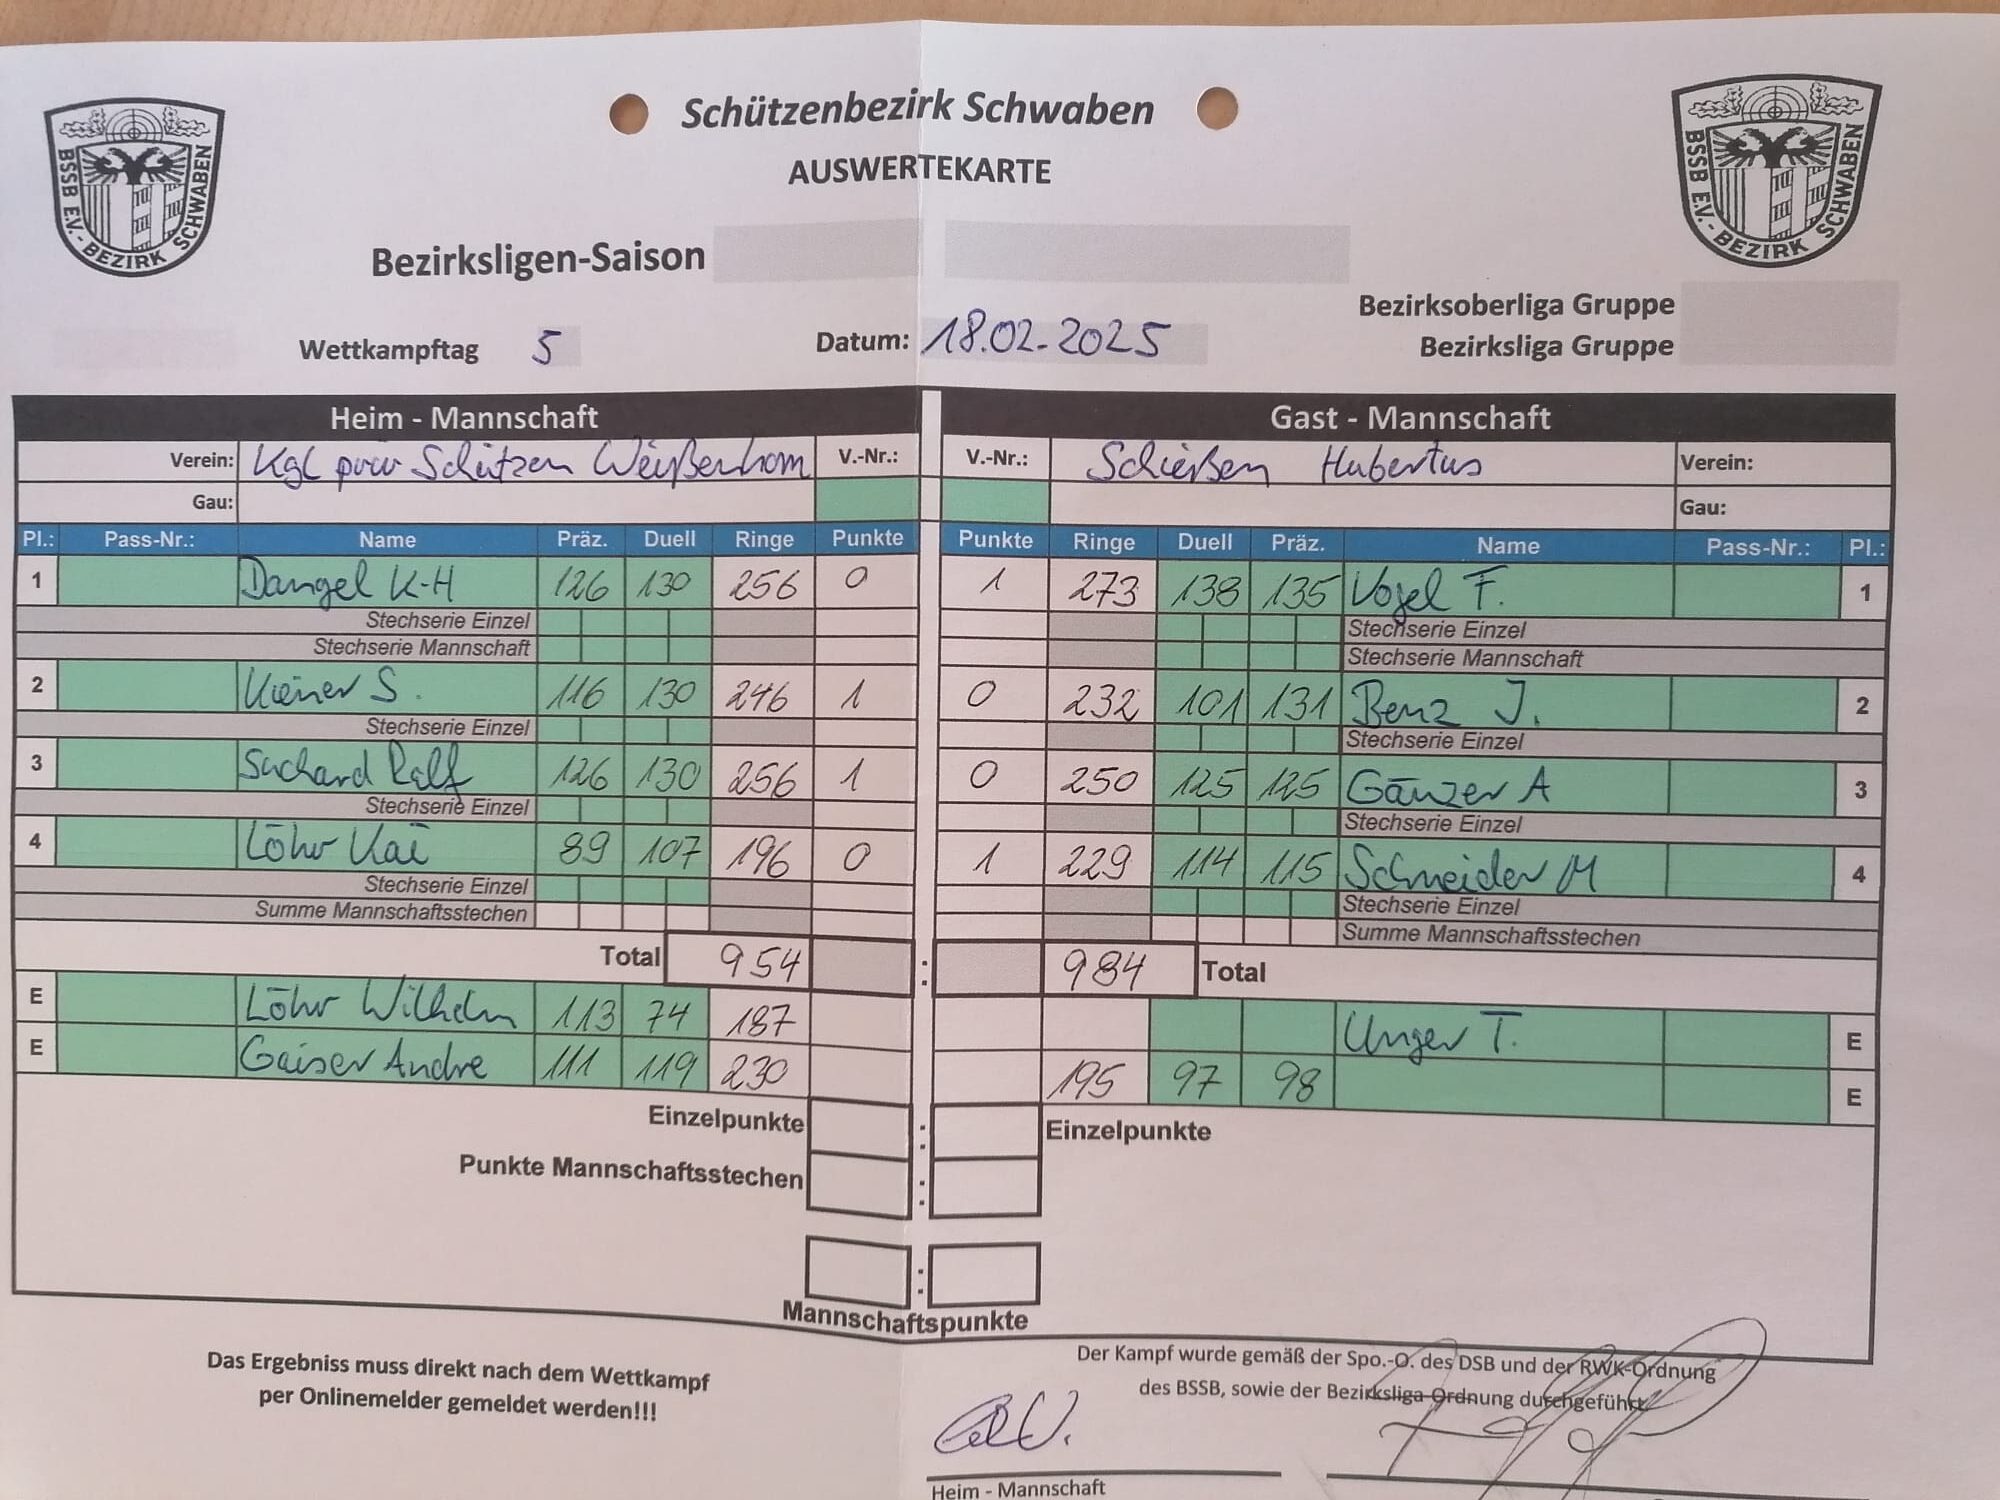 Schützenbezirk Schwaben
AUSWERTEKARTE
BSSB E.V. - BEZIRK SCHWABEN
BSSB E.V. - BEZIRK SCHWABEN
Bezirksligen-Saison
Bezirksoberliga Gruppe
Wettkampftag 5 Datum: 18.02.2025 Bezirksliga Gruppe
Heim - Mannschaft Gast - Mannschaft
Verein: Kgl priv Schützen Weißenhorn V.-Nr.: V.-Nr.: Schießen Hubertus Verein:
Gau: Gau:
Pl.: Pass-Nr.: Name Präz. Duell Ringe Punkte Punkte Ringe Duell Präz. Name Pass-Nr.: Pl.:
1 Dangel K-H 126 130 256 0 1 273 138 135 Vogel F. 1
Stechserie Einzel Stechserie Einzel
Stechserie Mannschaft Stechserie Mannschaft
2 S. 116 130 246 1 0 232 101 131 Benz J. 2
Stechserie Einzel Stechserie Einzel
3 Suchard Ralf 126 130 256 1 0 250 125 125 Gänzer A 3
Stechserie Einzel Stechserie Einzel
4 Löhr Kai 89 107 196 0 1 229 114 115 Schneider M 4
Stechserie Einzel Stechserie Einzel
Summe Mannschaftsstechen Summe Mannschaftsstechen
Total 954 : 984 Total
E Löhr Wilhelm 113 74 187 Unger T. E
E Gaiser Andre 111 119 230 195 97 98 E
Einzelpunkte : Einzelpunkte
Punkte Mannschaftsstechen :
:
Mannschaftspunkte
Das Ergebniss muss direkt nach dem Wettkampf
per Onlinemelder gemeldet werden!!!
Der Kampf wurde gemäß der Spo.-O. des DSB und der RWK-Ordnung
des BSSB, sowie der Bezirksliga-Ordnung durchgeführt
Heim - Mannschaft